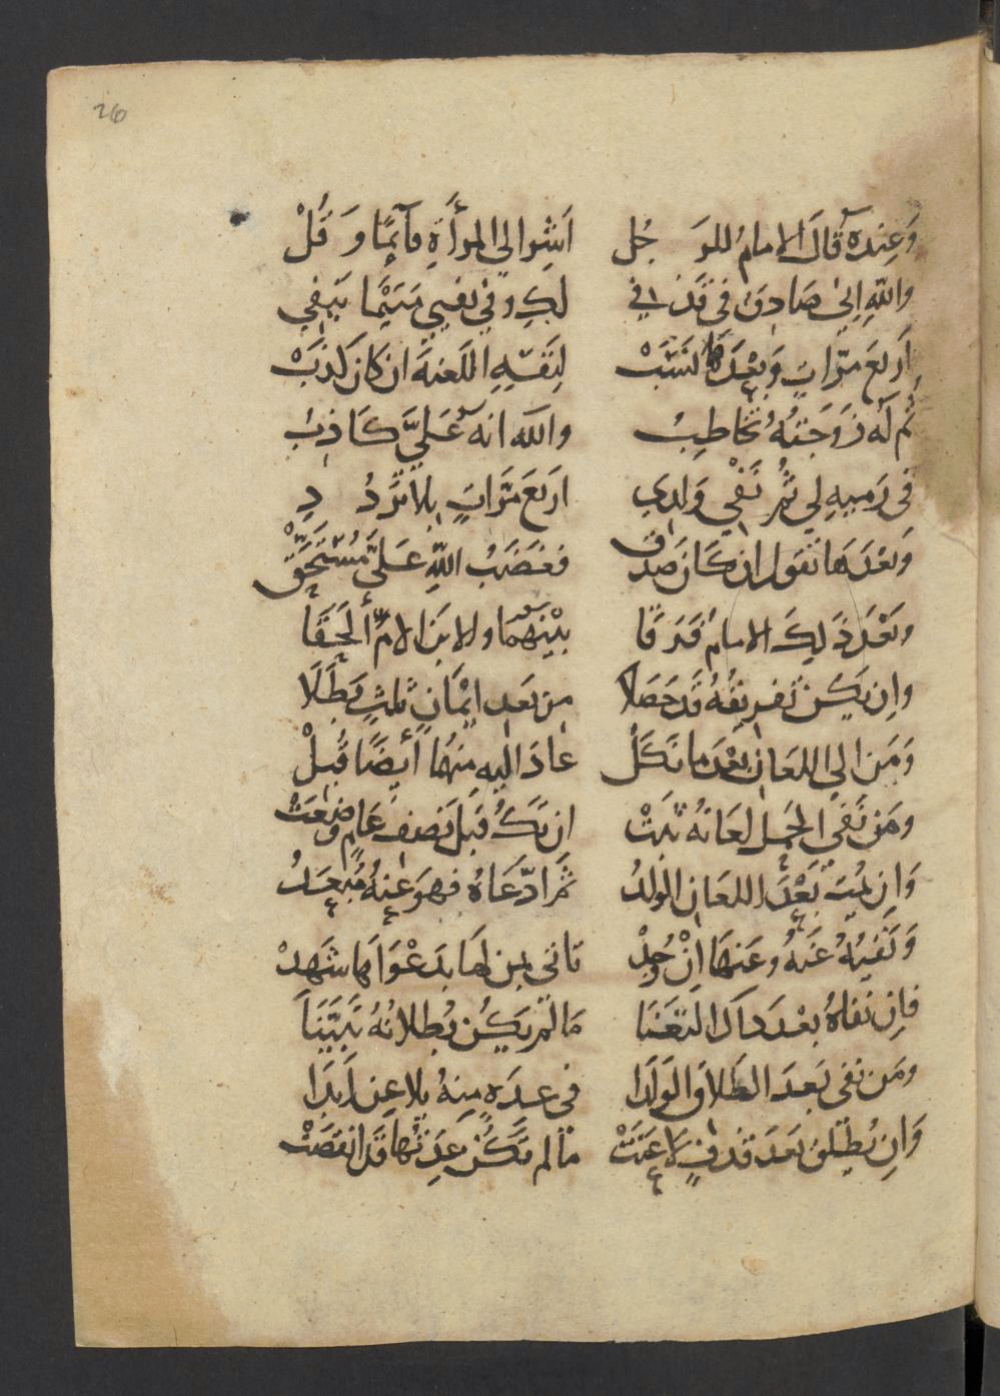 26
وَعِندَهُ قَالَ الامامُ للرَ جُل اَشِر الي المرأَةِ قآئِمًا وَ قُلْ
واللّهِ إِلىٰ صَادِق في قَذفي لكِ وفي نفيي
اَربعَ مَرَّاتٍ وَبَعْدَهَا لنَسَبْ لِنَفسِهِ اللعنهَ ان كان كذَبْ
ثُم لَه زَوجَتهُ تخاطِبُ واللّه انه عَليَّ كَاذِبُ
في رَميهِ لي ثُم نَفْي وَلدي اربَعَ مَرَّاتٍ بلا تَرَدُ دِ
وَبَعْدَهَا تقول ان كَانَ صَدَق فغَضَبُ اللّهِ عَليَّ مُسْتَحَقّ
وبَعْدَ ذَلِكَ الامامُ فَرَقَا بيْنهمَا والابنَ الامَّ أَلحَقَا
وان يَكن تَفريقُهُ قَد حَصَلا من بَعدِ ايْمَانٍ ثلثٍ بَطَلَا
وَمَن الي اللعَان بَعْدَ ما نَكَلْ عَادَ اليهِ مِنهُا أَيضًا قُبلْ
ومَن نَفي الحَمل لعَانهُ ثبَتْ ان تكُ قبل نصفِ عَامٍ وضعَتْ
وَان يمُت بَعْدَ اللعَانِ الولدُ ثمَّ ادّعَاهُ فهوَ عنهُ مُبعَدُ
وَنَفيُهُ عَنهُ وعَنهَا اِنْ وُجِدْ تاتي بمن لهَا بدَعْوَاهَا شَهِدْ
فان نفاهُ بعْدَ ذاكَ التعَنَا مَا لمْ يَكُن بُطلانُهُ تَبَيَّنَا
ومَن نَفي بَعدَ الطَلاقِ الوَلَدَا في عِدّةٍ مِنهُ يلاعِن اَبَدَا
وَان يُطلق بَعدَ قَذفٍ لاعَنَتْ مَا لم تَكُن عِدّتُها قَد انقَضَتْ